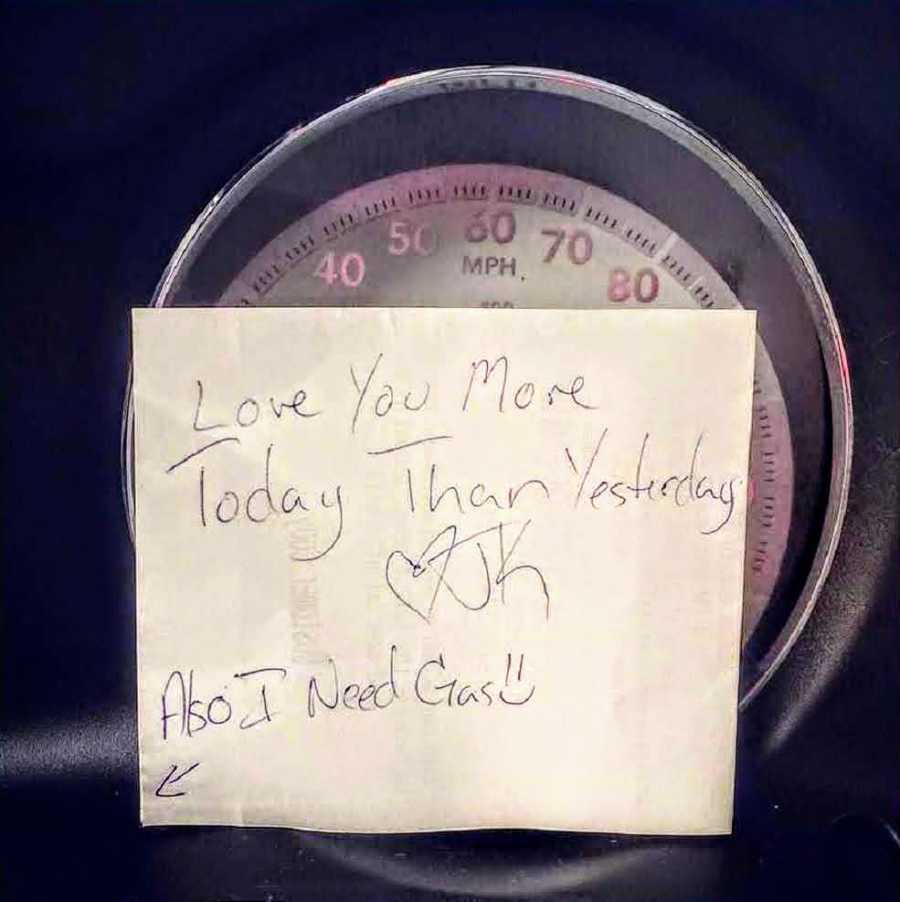 40 50 60 70 80
MPH
Love You More
Today Than Yesterday
Also I Need Gas!!